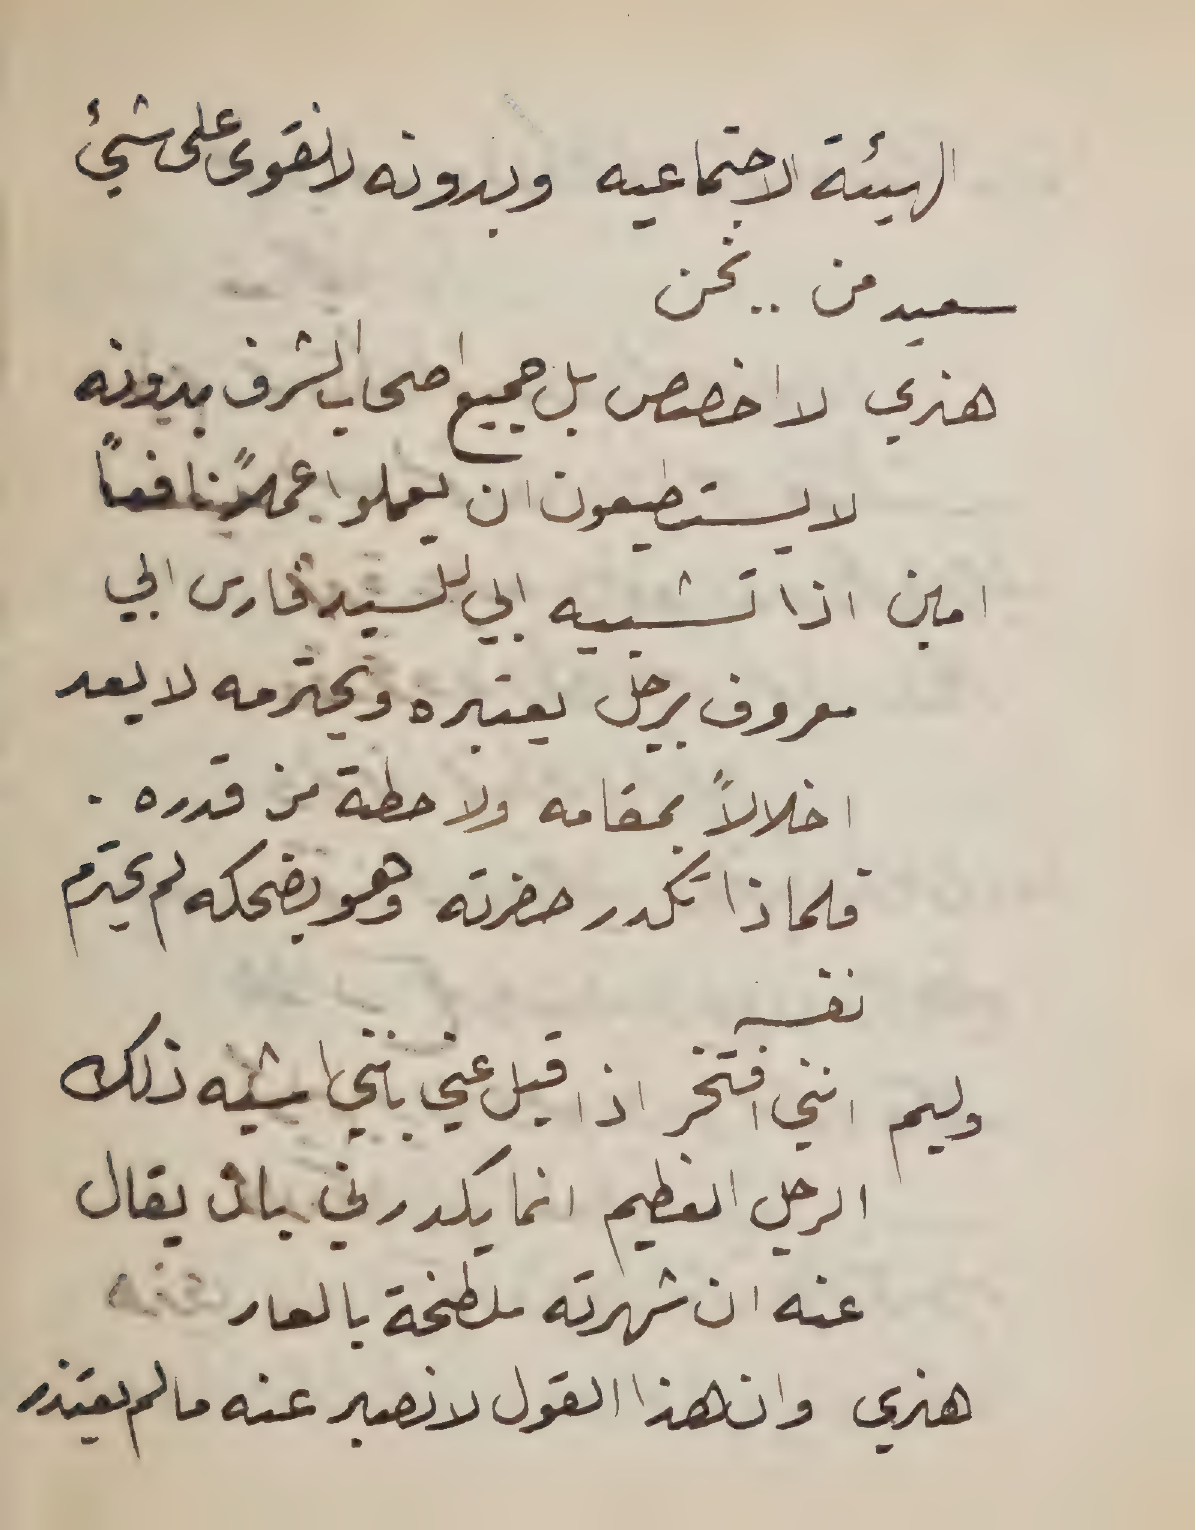 الهيئة الاجتماعيه وبدونه لا نقوى على شئ
سعيد من .. نحن
هنري لا اخصص بل جميع اصحاب الشرف بدونه
لا يستطيعون ان يعملوا عملاً نافعاً
امين اذا تشبيه ابي للسيد فارس ابي
معروف برجل يعتبره ونحترمه لا يعد
اخلالاً بمقامه ولا حطة من قدره .
فلماذا تكدر حضرته وهو بضحكه لم يحترم
نفسه
وليم انني افتخر اذا قيل عني بانني اشبه ذلك
الرجل العظيم انما يكدرني بان يقال
عنه ان شهرته ملطخة بالعار
هنري وان هذا القول لا نصبر عنه ما لم يعتذر